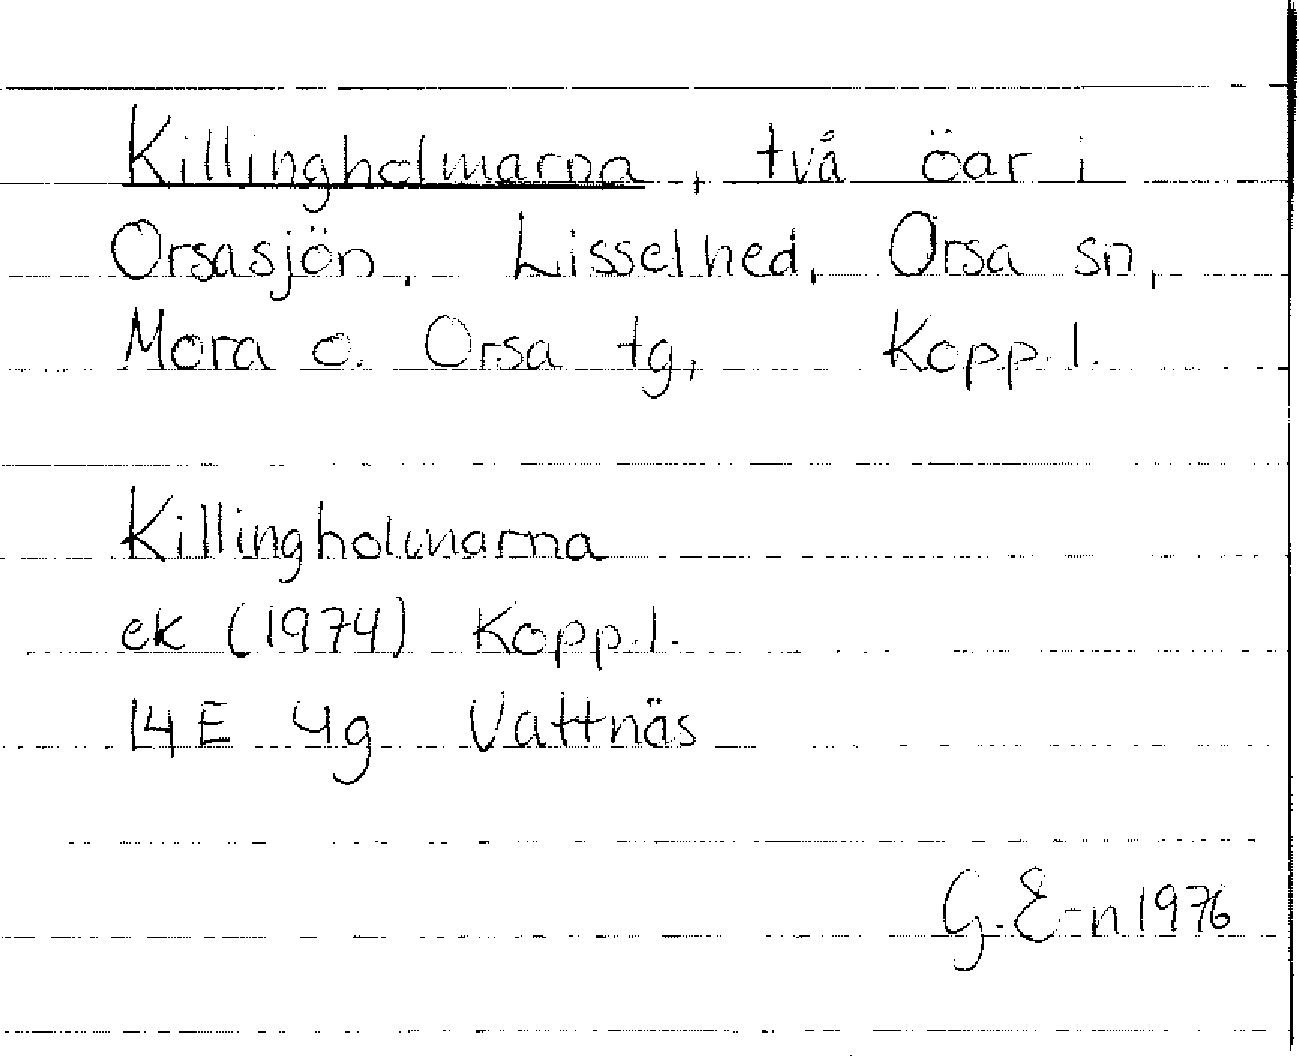 Killingholmarna, två öar i
Orsasjön. Lisselhed, Orsa sn,
Mora o. Orsa tg, Kopp. l.
Killingholmarna
ek (1974) Kopp. l.
14E 4g Vattnäs
G. E-n 1976